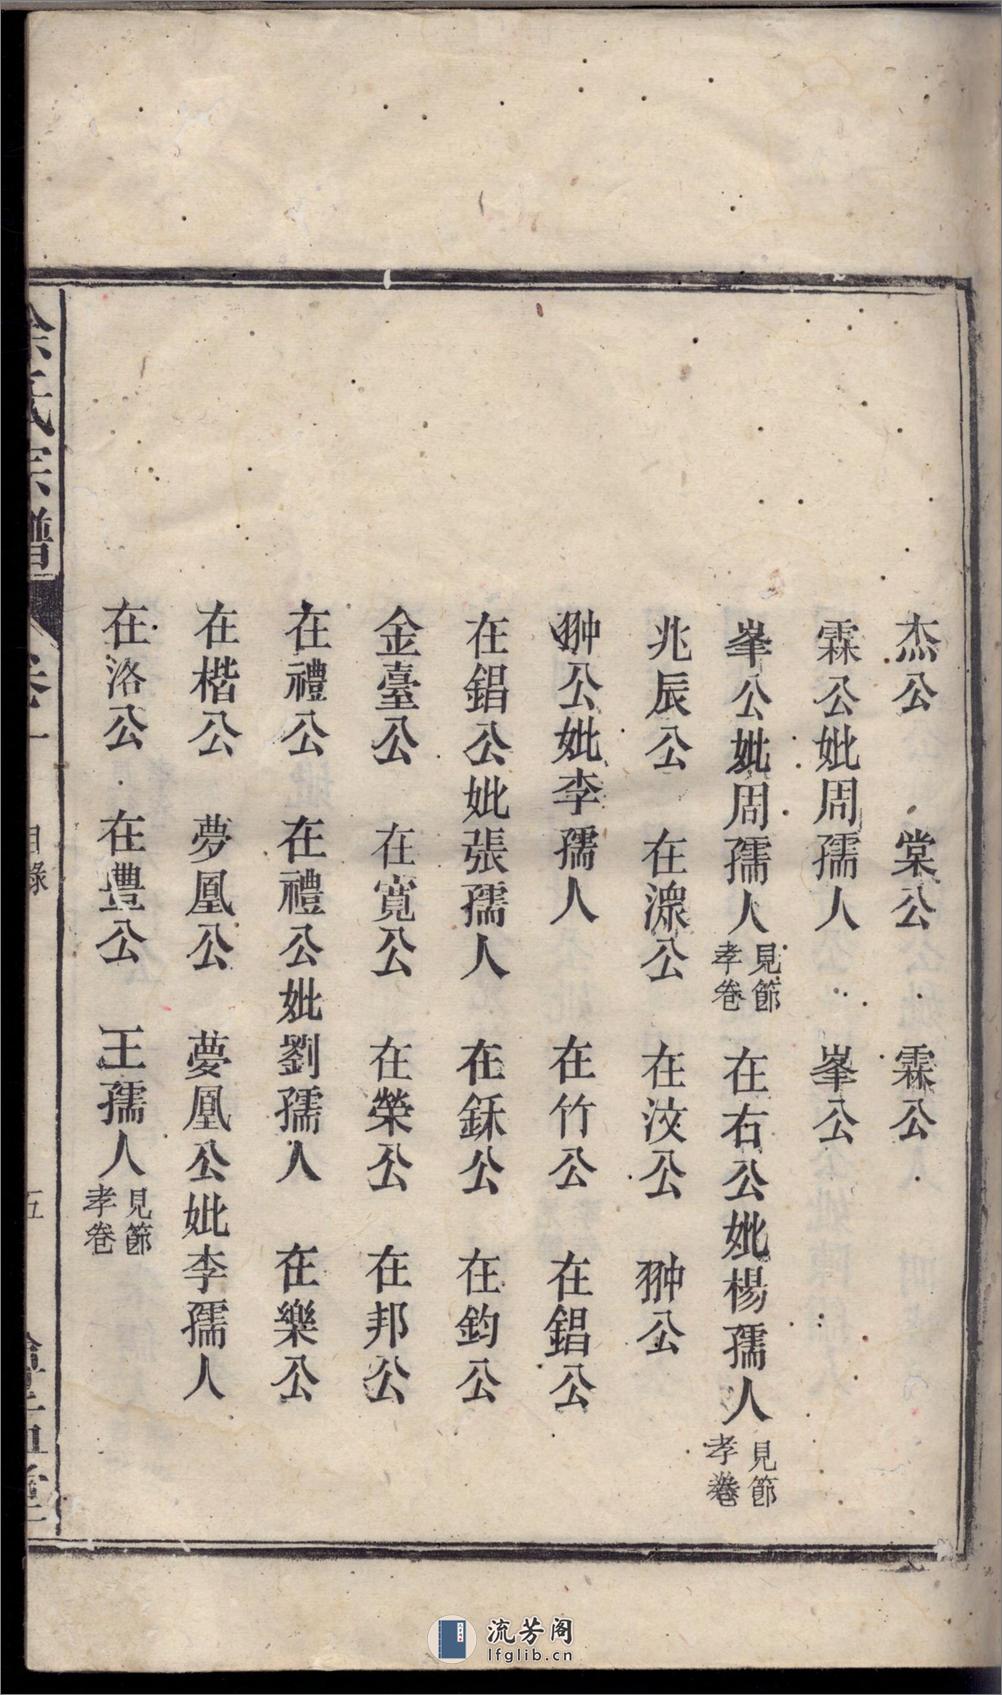 杰公　棠公　霖公
霖公妣周孺人　峯公
峯公妣周孺人見節孝卷　在右公妣楊孺人見節孝卷
兆辰公　在㵂公　在汶公　翀公
翀公妣李孺人　在竹公　在錩公
在錩公妣張孺人　在鉌公　在鈞公
金臺公　在寬公　在榮公　在邦公
在禮公　在禮公妣劉孺人　在樂公
在楷公　夢凰公　夢凰公妣李孺人
在洛公　在豊公　王孺人見節孝卷
余氏宗譜　卷一　目錄　五
流芳阁
lfglib.cn